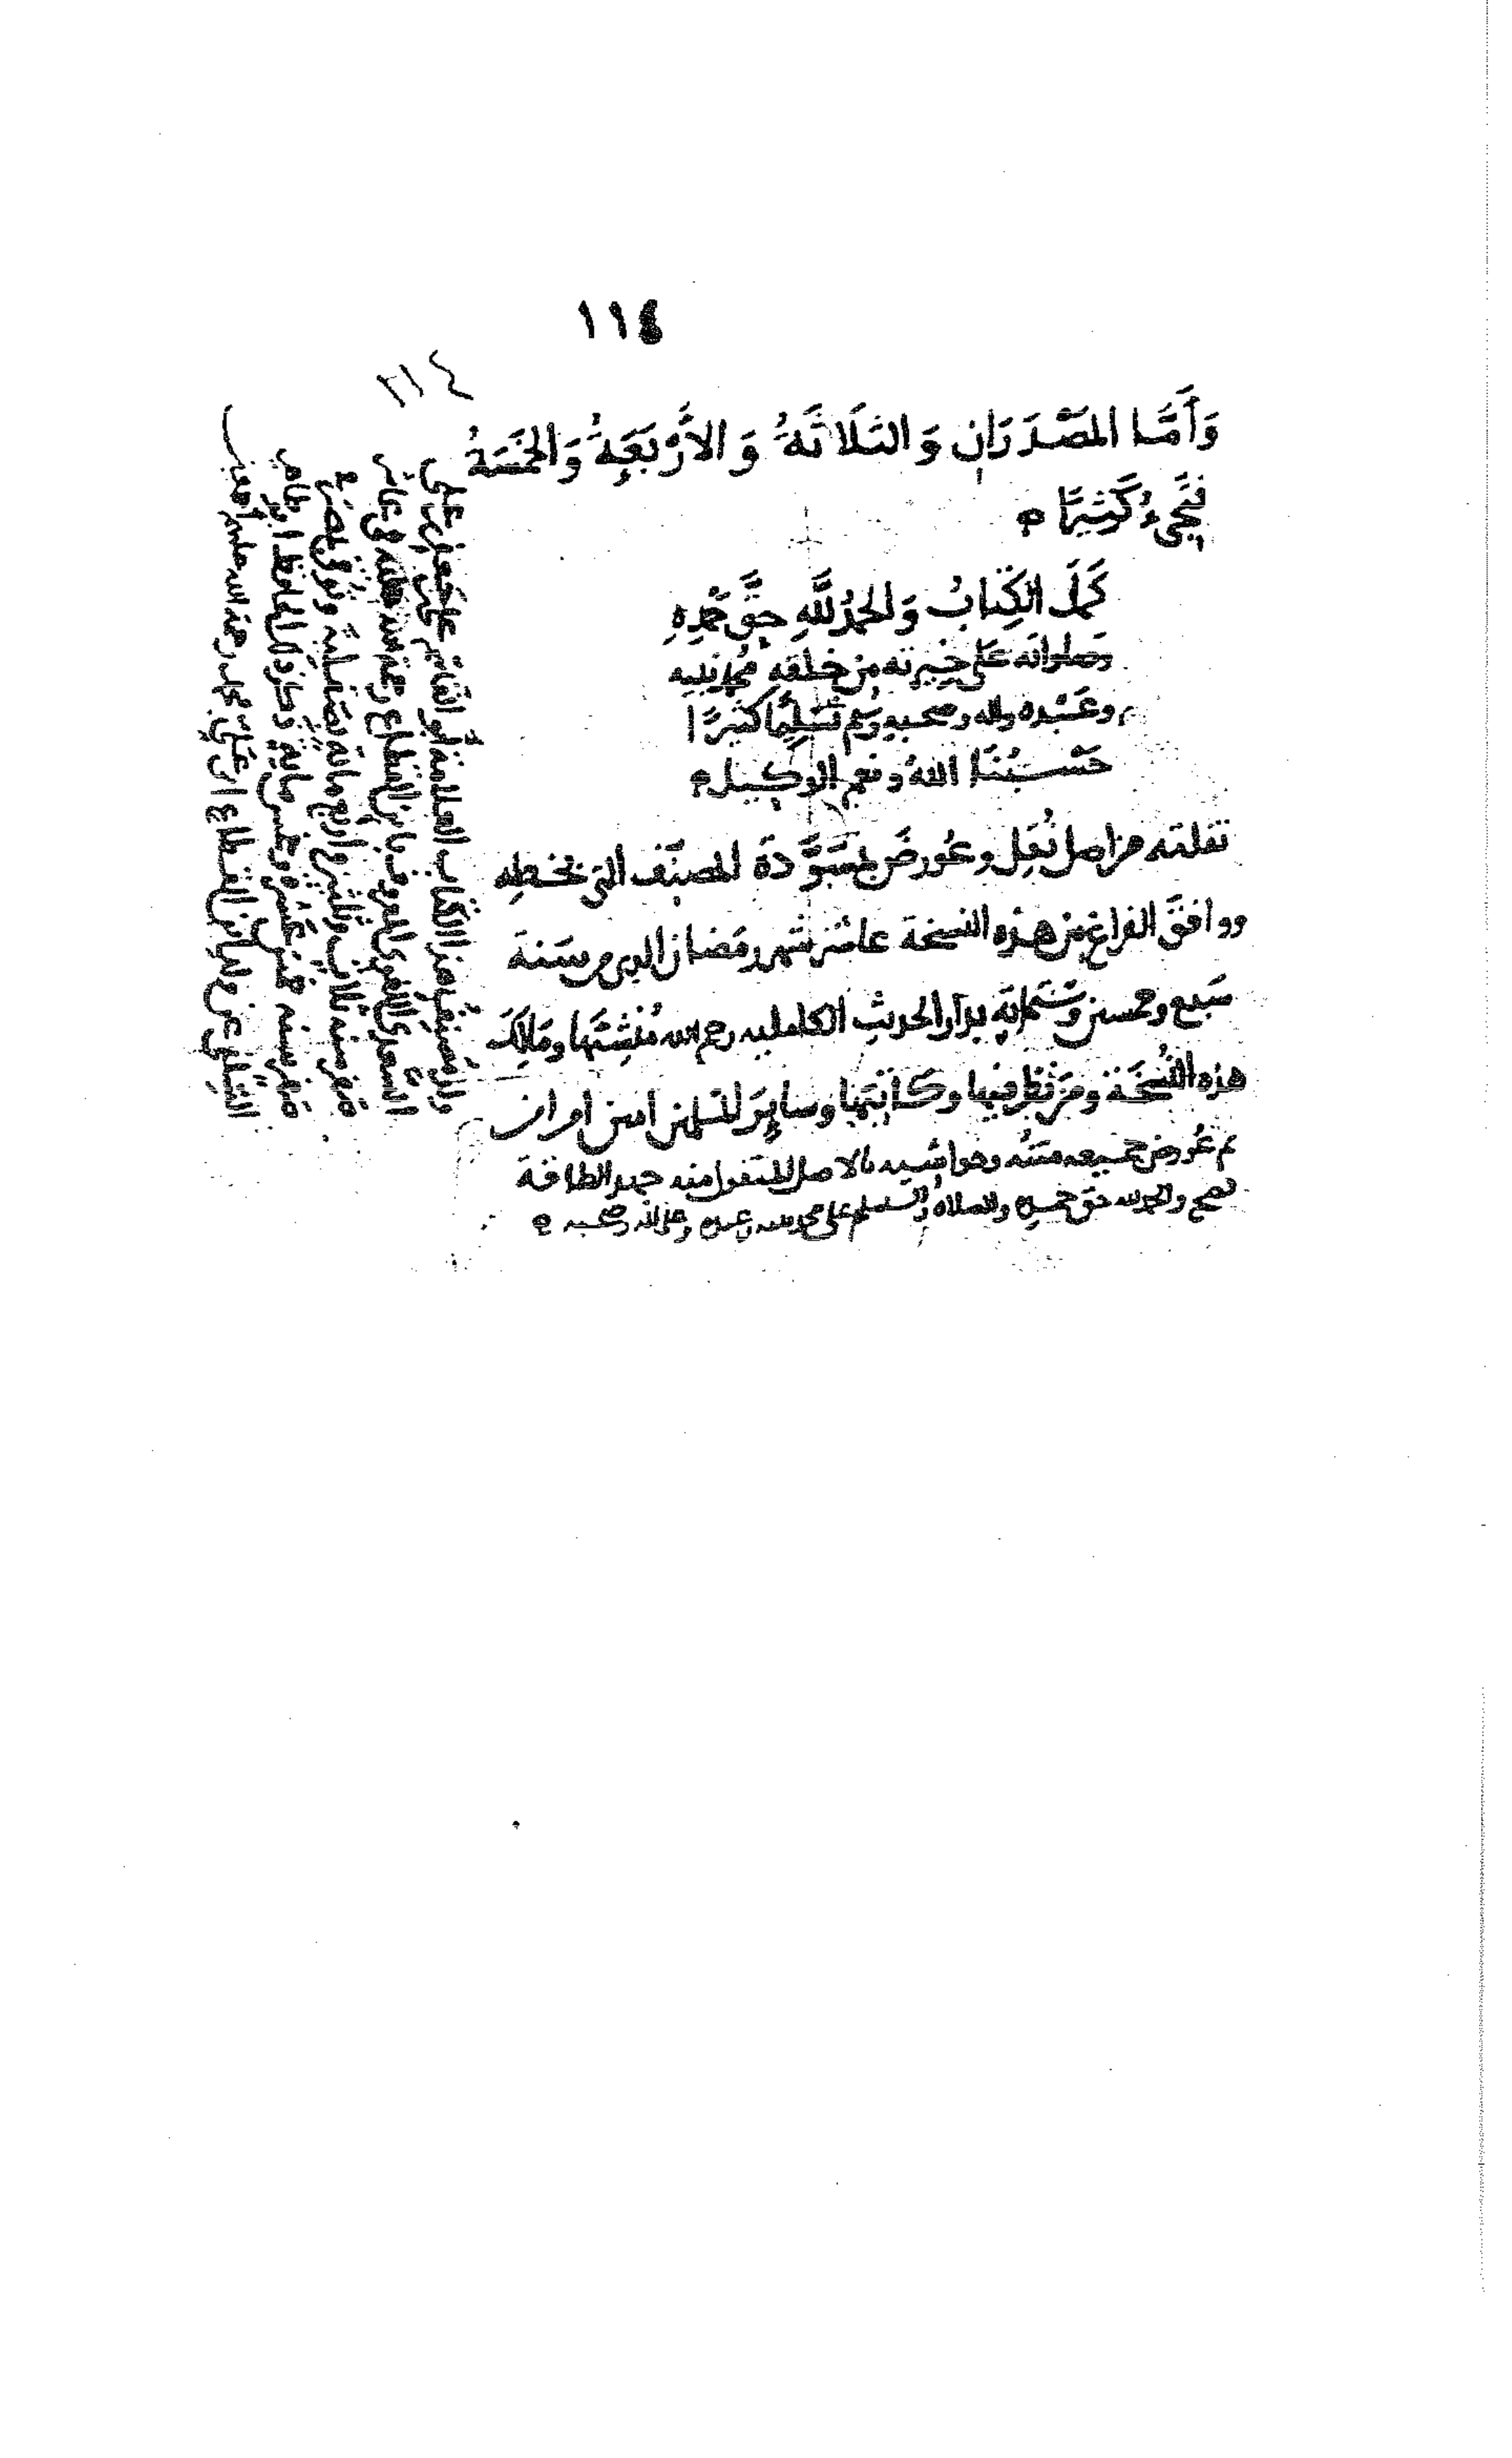 ١١٤
١١٤
وَأَمَّا المَصْدَرَانِ وَالثَلَاثَةُ وَالأَرْبَعَةُ وَالخَمْسَةُ
فَتَجِيءُ كَثِيرًا
كَمَلَ الكِتَابُ وَالحمدُ للَّهِ حَقَّ حَمْدِهِ
وصلواته على خيرته من خلقه محمد نبيه
وعَبْده واله وصحبه وسلم تَسْلِيمًا كثيرًا
حَسْبُنَا اللهُ ونعم الوكيل
نقلته من اصل نُقِل وعُورضَ بمُسَوَّدَة المصنّف التي بخطه
ووافقَ الفراغ من هذه النسخة عاشر شهر رمضان الذي من سَنة
سَبع وخمسين وستمائة بدار الحديث الكاملية رحم الله مُنْشِئَها ومَالِكَ
هذه النُسْخَة ومَن نظر فيها وكاتبها وسايرَ المسلمين امين امين
ثم عُورض جميعه متنُه وحواشيه بالاصل المنقول منه جهد الطاقة
فصح والحمد لله حق حمده والصلاة والسلام على محمد نبيه وعبده وعلى آله وصحبه
ولد مُصَنِّف هذا الكتاب العلامة أبو القاسم علي بن جعفر بن علي
السعدي اللغوي المعروف بابن القطاع رحمه الله في عاشر
صفر سنه ثلاث وثلثين واربع مائة بصقلية وتوفي بمصر في
صفر سنه خمس عشرة وخمس ماية وذكر ذلك الحافظ ابو طاهر
السِّلَفي عن ابن القطاع رحمة الله عليهم أجمعين